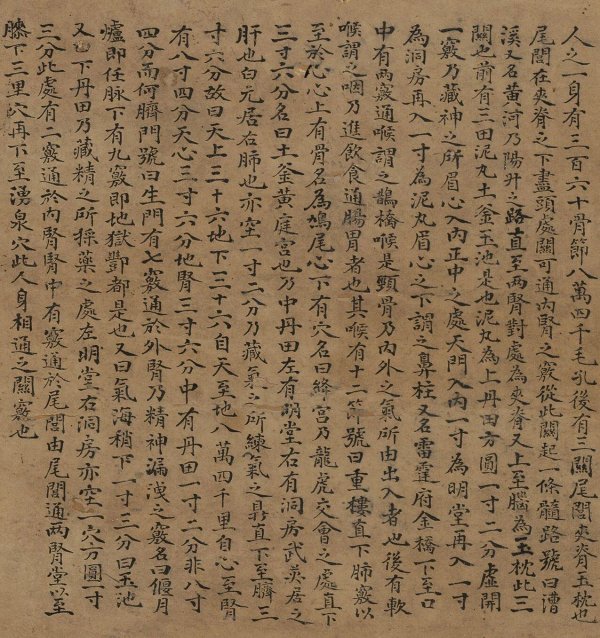 人之一身有三百六十骨節八萬四千毛孔後有三關尾閭夾脊玉枕也
尾閭在夾脊之下盡頭處關可通內腎之竅從此關起一條髓路號曰漕
溪又名黃河乃陽升之路直至兩腎對處為夾脊又上至腦為玉枕此三
關也前有三田泥丸土釜玉池是也泥丸為上丹田方圓一寸二分虛開
一竅乃藏神之所眉心入內正中之處天門入內一寸為明堂再入一寸
為洞房再入一寸為泥丸眉心之下謂之鼻柱又名雷霆府金橋下至口
中有兩竅通喉謂之鵲橋喉是頸骨乃內外之氣所由出入者也後有軟
喉謂之咽乃進飲食通腸胃者也其喉有十二節號曰重樓直下肺竅以
至於心心上有骨名為鳩尾心下有穴名曰絳宮乃龍虎交會之處直下
三寸六分名曰土釜黃庭宮也乃中丹田左有明堂右有洞房武英居之
肝也白元居右肺也亦空一寸二分乃藏氣之所煉氣之鼎直下至臍三
寸六分故曰天上三十六地下三十六自天至地八萬四千里自心至腎
有八寸四分天心三寸六分地腎三寸六分中有丹田一寸二分非八寸
四分而何臍門號曰生門有七竅通於外腎乃精神漏洩之竅名曰偃月
爐即任脉下有九竅即地獄酆都是也又曰氣海稍下一寸三分曰玉池
又曰下丹田乃藏精之所採藥之處左明堂右洞房亦空一穴方圓一寸
三分此處有二竅通於內腎腎中有竅通於尾閭由尾閭通兩腎堂以至
膝下三里穴再下至湧泉穴此人身相通之關竅也